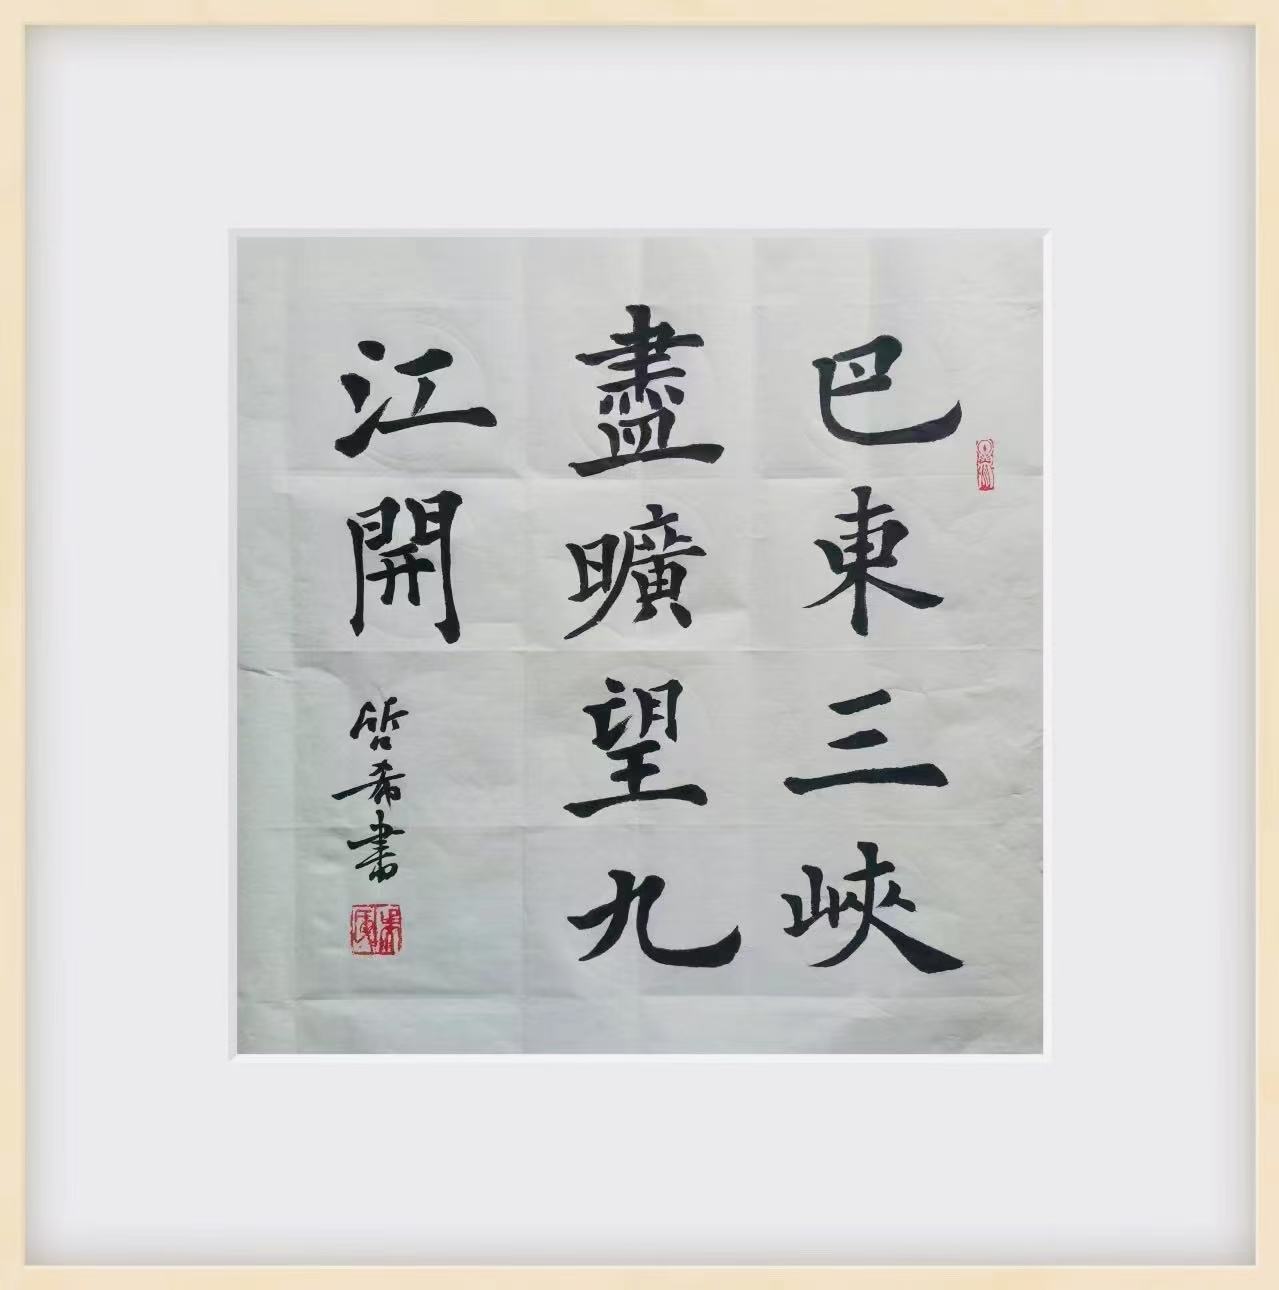 巴東三峽
盡曠望九
江開
笘希書